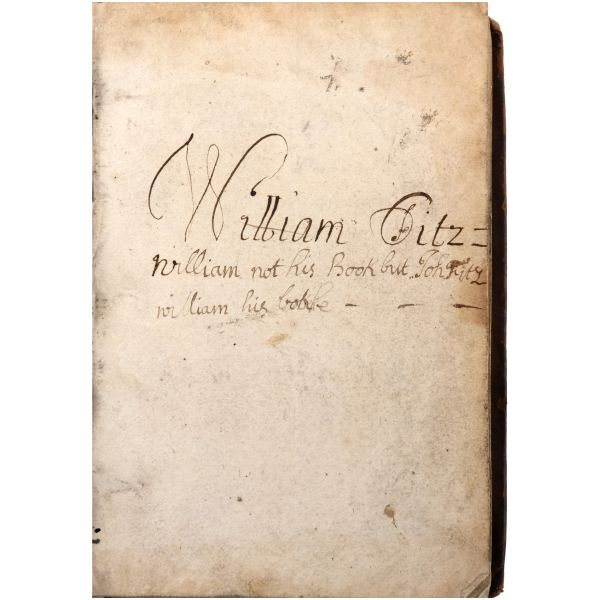 William Fitz=
william not his Book but Joh Fitz
william his booke - - -